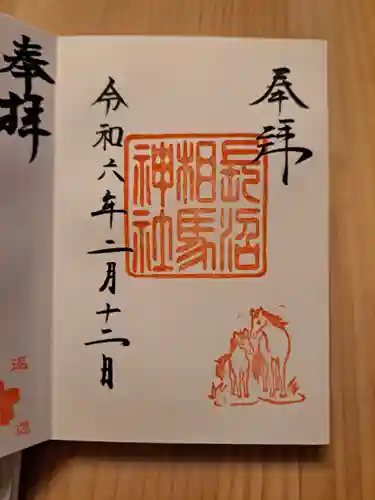 奉拝
長沼
相馬
神社
令和六年二月十二日
奉拝